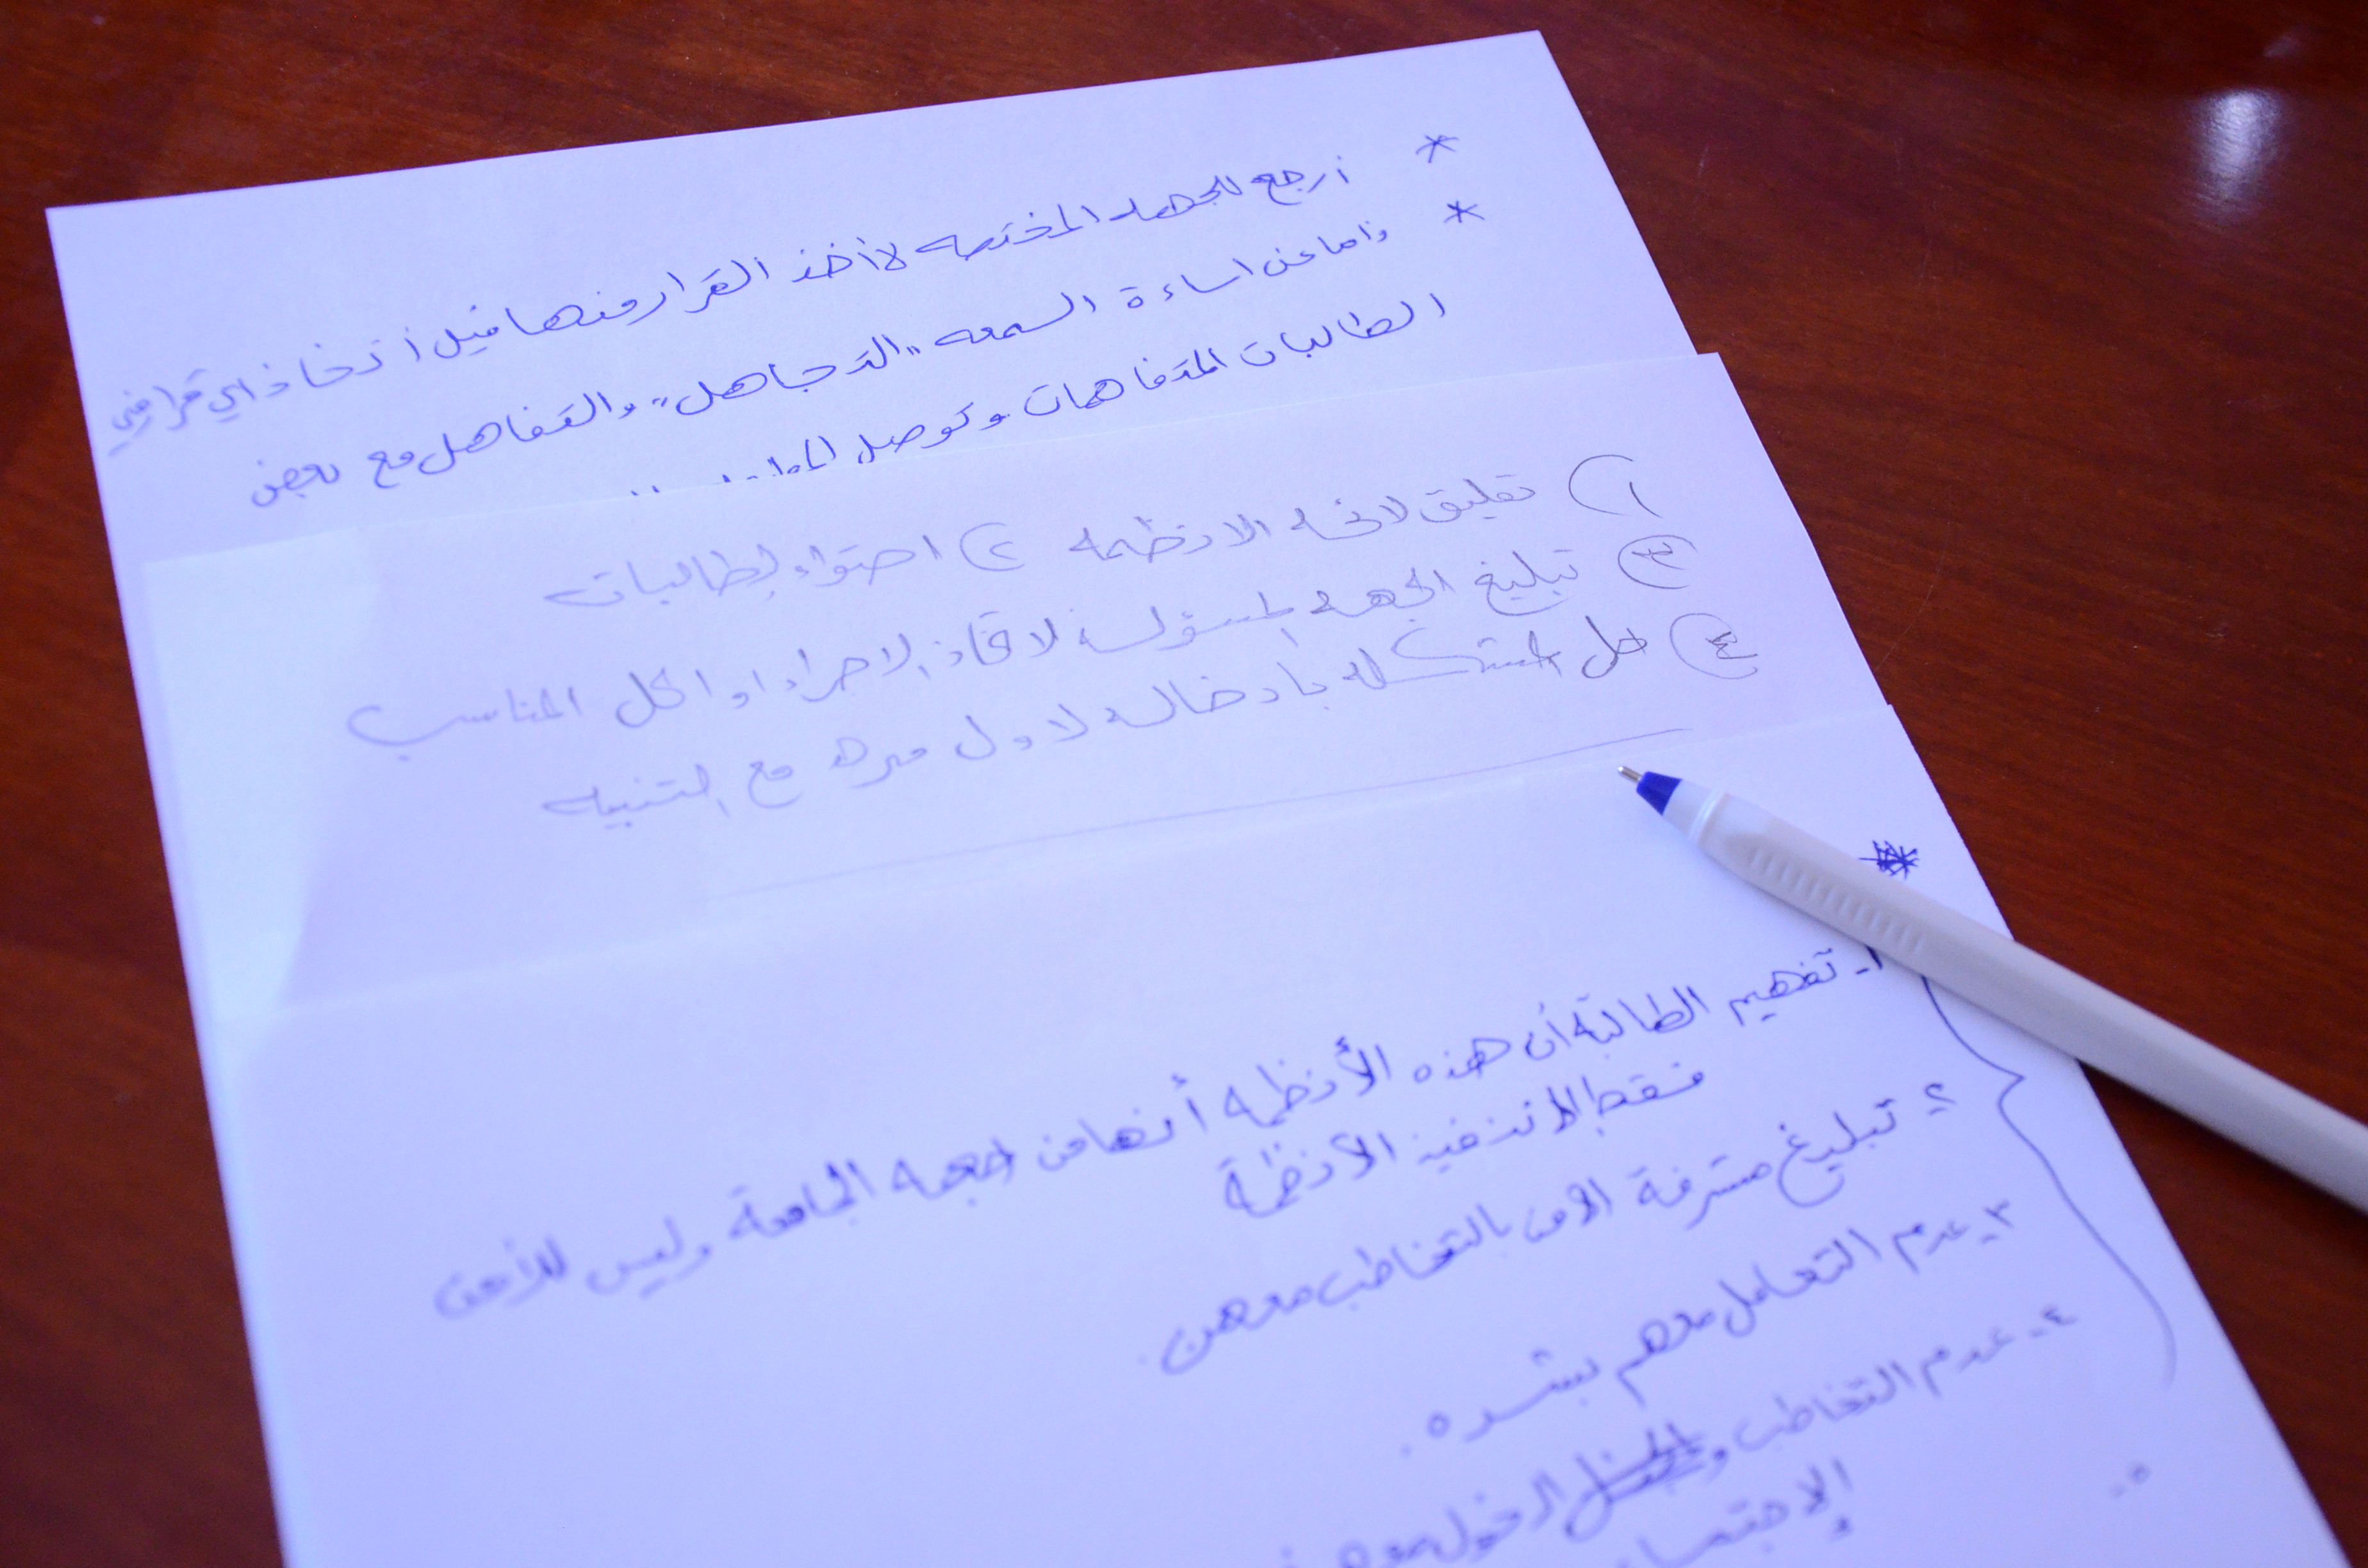 * أرجع للجهه المختصه لأخذ القرار منها قبل أتخاذ اي قرار مني
* واما عن اساءة السمعه "التجاهل" والتفاهل مع بعض
الطالبات المتفاهمات وكوصل
١) تعليق لائحه الانظمه ٢) احتواء الطالبات
٣) تبليغ الجهه المسؤله لاتخاذ الاجراء او الحل المناسب
٤) حل المشكله بادخاله لاول مره مع التنبيه
١- تفهيم الطالبة أن هذه الأنظمه أنها من جهه الجامعة وليس للأمن
فقط إلا تنفيذ الأنظمة
٢- تبليغ مشرفة الامن بالتخاطب معهن.
٣- عدم التعامل معهم بشده.
٤- عدم التخاطب و الدخول